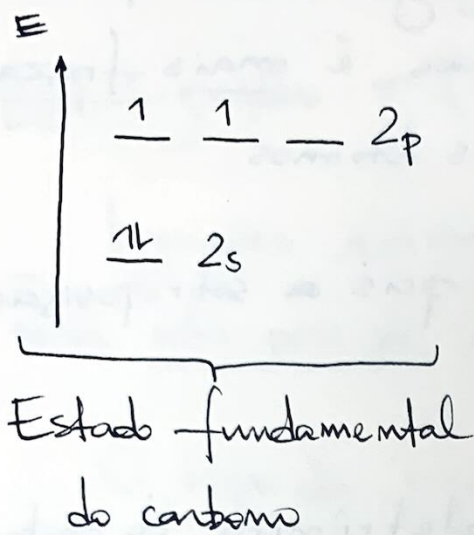 E
1 1 2p
1L 2s
Estado fundamental
do carbono